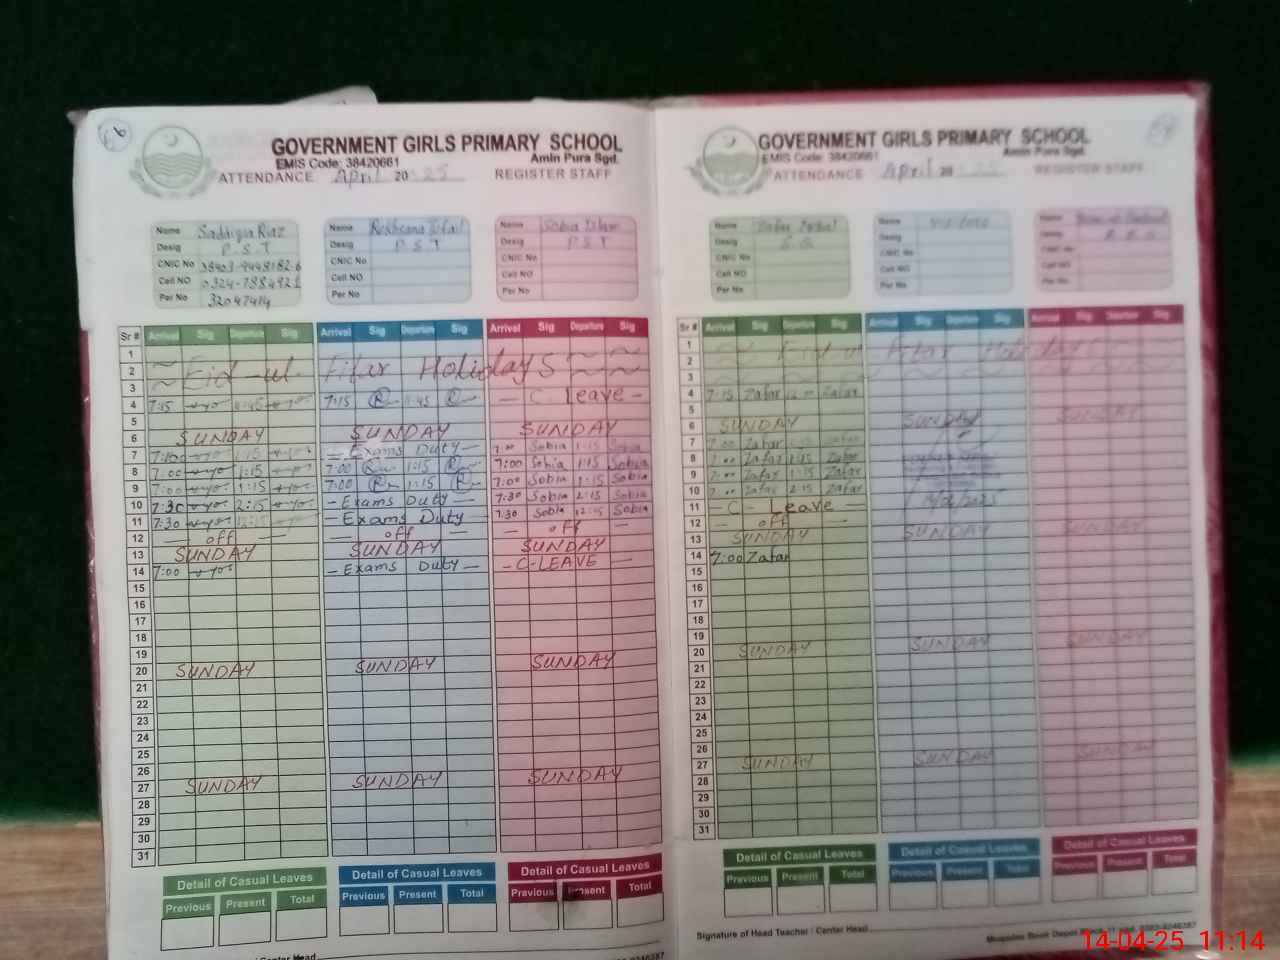 GOVERNMENT GIRLS PRIMARY SCHOOL
EMIS Code: 38420661 Amin Pura Sgd.
ATTENDANCE April 2025 REGISTER STAFF
Name Saddiqia Riaz
Desig P.S.T
CNIC No
Cell NO 0324-7884921
Per No
Name Rukhsana Tufail
Desig P.S.T
CNIC No
Cell NO
Per No
Name Sobia Islam
Desig P.S.T
CNIC No
Cell NO
Per No
Sr # Arrival Sig Departure Sig Arrival Sig Departure Sig Arrival Sig Departure Sig
1
2 Eid-ul Fitar Holidays
3
4 7:15 1:45 7:15 R 1:45 R C. Leave
5
6 SUNDAY SUNDAY SUNDAY
7 7:00 1:15 Exams Duty Sobia 1:15 Sobia
8 7:00 1:15 7:00 R 1:15 R 7:00 Sobia 1:15 Sobia
9 7:00 1:15 7:00 R 1:15 R 7:00 Sobia 1:15 Sobia
10 7:30 2:15 Exams Duty 7:30 Sobia 2:15 Sobia
11 7:30 12:15 Exams Duty 7:30 Sobia 12:15 Sobia
12 off off off
13 SUNDAY SUNDAY SUNDAY
14 7:00 Exams Duty C-LEAVE
15
16
17
18
19
20 SUNDAY SUNDAY SUNDAY
21
22
23
24
25
26
27 SUNDAY SUNDAY SUNDAY
28
29
30
31
Detail of Casual Leaves Detail of Casual Leaves Detail of Casual Leaves
Previous Present Total Previous Present Total Previous Present Total
Center Head
GOVERNMENT GIRLS PRIMARY SCHOOL
EMIS Code: 38420661 Amin Pura Sgd.
ATTENDANCE April 2025 REGISTER STAFF
Name Zafar Iqbal
Desig
CNIC No
Cell NO
Per No
Name
Desig
CNIC No
Cell NO
Per No
Name
Desig
CNIC No
Cell NO
Per No
Sr # Arrival Sig Departure Sig Arrival Sig Departure Sig Arrival Sig Departure Sig
1
2 Eid-ul Fitar Holidays
3
4 7:15 Zafar Zafar
5
6 SUNDAY SUNDAY SUNDAY
7 7:00 Zafar 1:15 Zafar
8 Zafar 1:15 Zafar
9 Zafar 1:15 Zafar
10 Zafar 2:15 Zafar
11 C- Leave
12 off
13 SUNDAY SUNDAY SUNDAY
14 7:00 Zafar
15
16
17
18
19
20 SUNDAY SUNDAY SUNDAY
21
22
23
24
25
26
27 SUNDAY SUNDAY SUNDAY
28
29
30
31
Detail of Casual Leaves Detail of Casual Leaves Detail of Casual Leaves
Previous Present Total Previous Present Total Previous Present Total
Signature of Head Teacher / Center Head
Book Depot
14-04-25 11:14